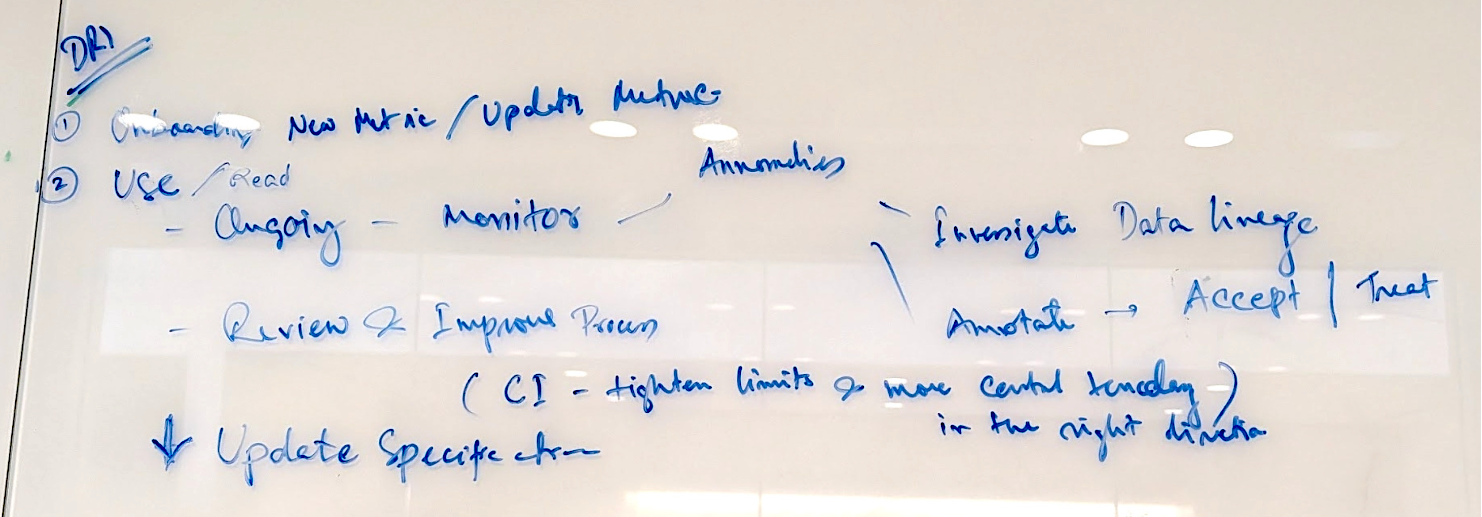 DRI
① Onboarding New Metric / Update Metric
② Use / Read
Annomalies
- Ongoing - Monitor
Invesigate Data lineage
- Review & Improve Process
Annotate → Accept | Treat
( CI - tighten limits & move central tencday )
in the right direction
↓ Update Specification